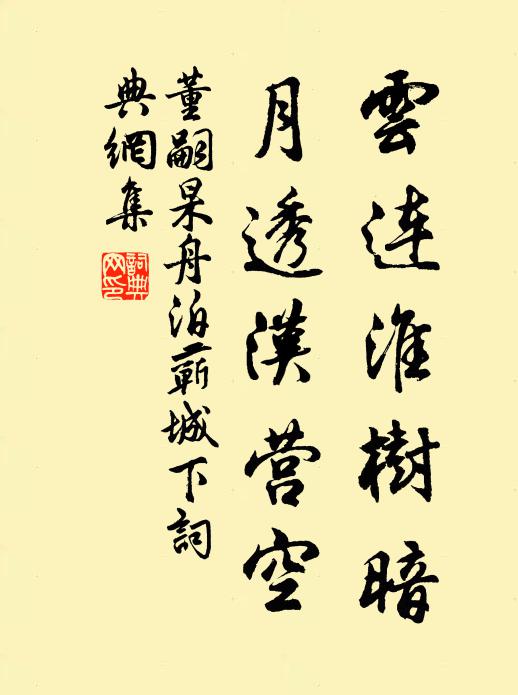 雲連淮樹暗
月透漢營空
董嗣杲舟泊蘄城下詞
典網集
詞典網印